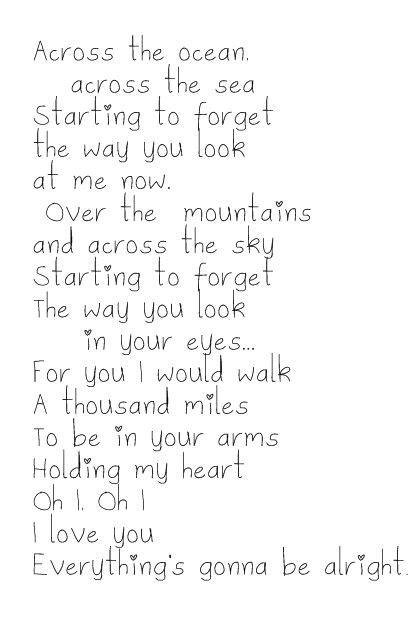 Across the ocean.
across the sea
Starting to forget
the way you look
at me now.
Over the mountains
and across the sky
Starting to forget
The way you look
in your eyes...
For you I would walk
A thousand miles
To be in your arms
Holding my heart
Oh I. Oh I
I love you
Everything's gonna be alright.